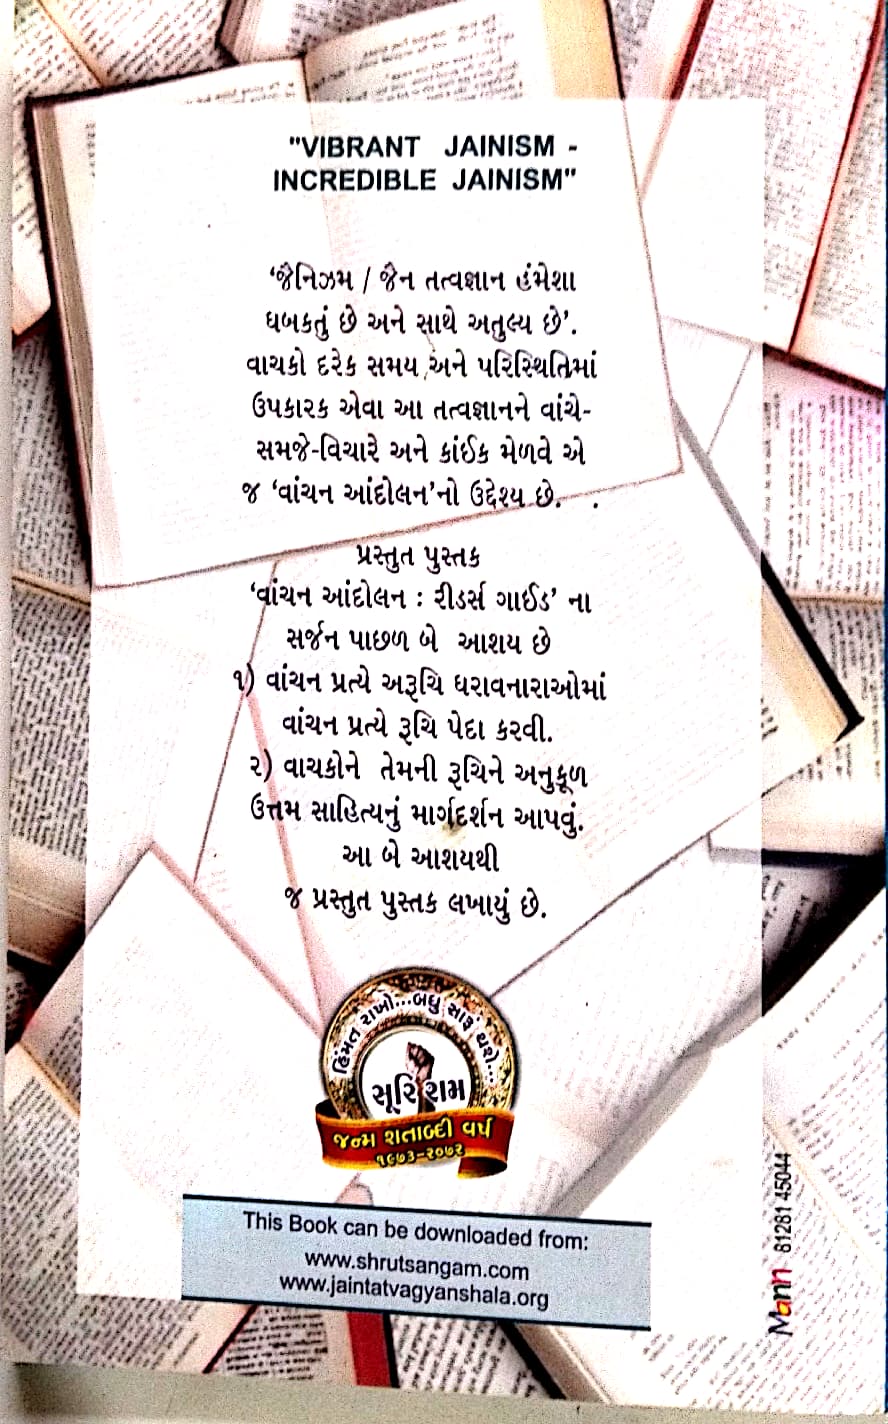 "VIBRANT JAINISM -
INCREDIBLE JAINISM"
'જૈનિઝમ / જૈન તત્વજ્ઞાન હંમેશા
ધબકતું છે અને સાથે અતુલ્ય છે'.
વાચકો દરેક સમય અને પરિસ્થિતિમાં
ઉપકારક એવા આ તત્વજ્ઞાનને વાંચે-
સમજે-વિચારે અને કાંઈક મેળવે એ
જ 'વાંચન આંદોલન'નો ઉદ્દેશ્ય છે.
પ્રસ્તુત પુસ્તક
'વાંચન આંદોલન : રીડર્સ ગાઈડ' ના
સર્જન પાછળ બે આશય છે
૧) વાંચન પ્રત્યે અરૂચિ ધરાવનારાઓમાં
વાંચન પ્રત્યે રૂચિ પેદા કરવી.
૨) વાચકોને તેમની રૂચિને અનુકૂળ
ઉત્તમ સાહિત્યનું માર્ગદર્શન આપવું.
આ બે આશયથી
જ પ્રસ્તુત પુસ્તક લખાયું છે.
હિંમત રાખો...બધુ સારૂં થશે...
સૂરિ રામ
જન્મ શતાબ્દી વર્ષ
૧૯૭૩-૨૦૭૨
This Book can be downloaded from:
www.shrutsangam.com
www.jaintatvagyanshala.org
Mann 81281 45044